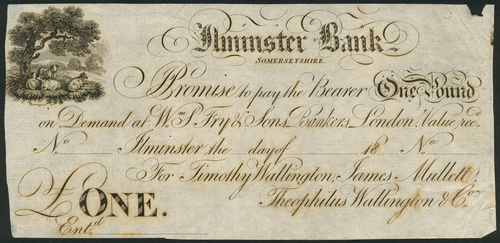 Ilminster Bank
SOMERSETSHIRE.
I Promise to pay the Bearer One Pound
on Demand at Wm. S. Fry & Sons, Bankers, London. Value recd.
No. Ilminster the day of 18 No.
For Timothy Wallington, James Mullett,
Theophilus Wallington & Co.
£ ONE.
Entd.